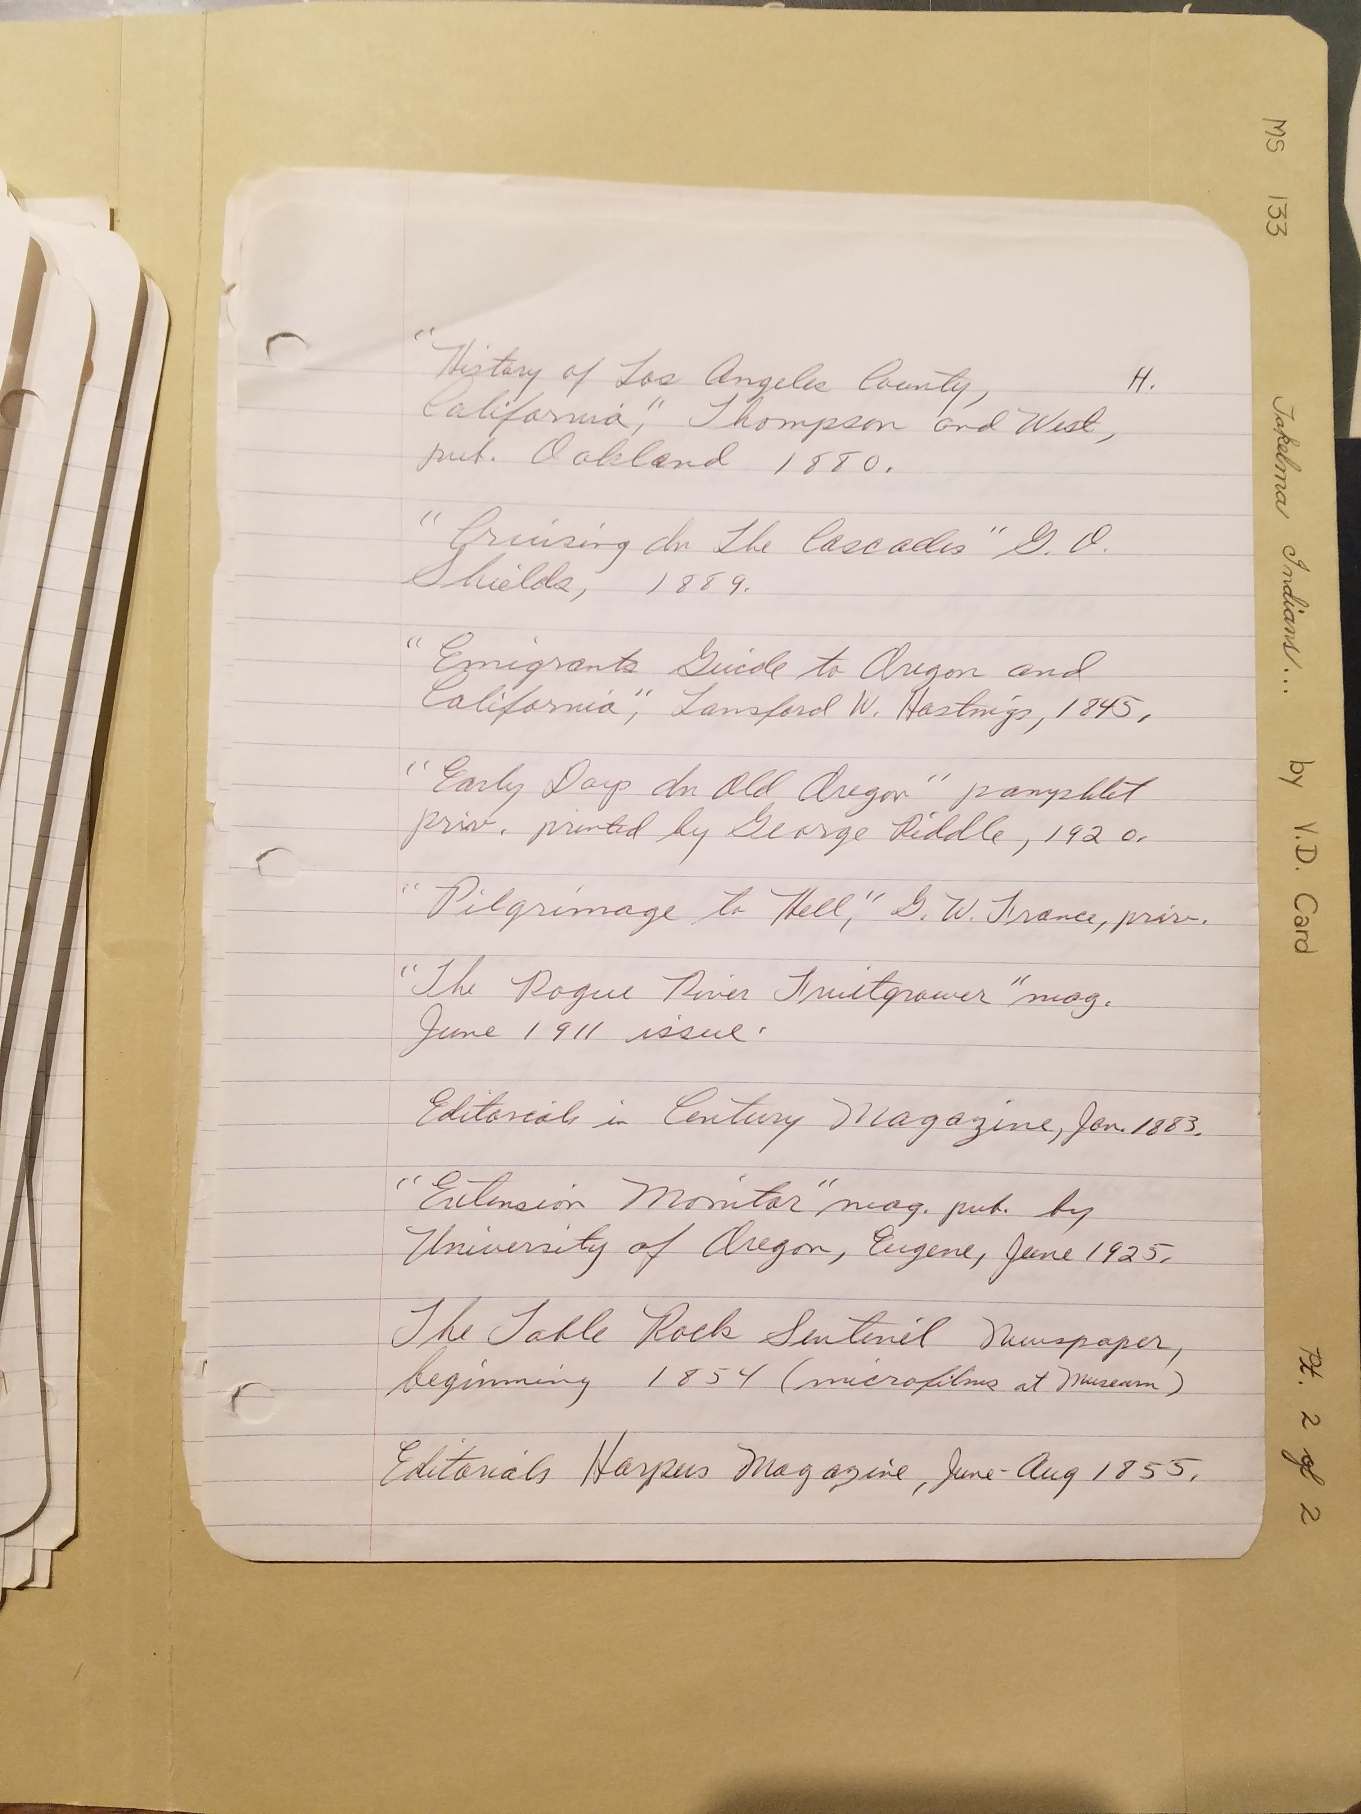 H.
"History of Los Angeles County,
California," Thompson and West,
pub. Oakland 1880.
"Cruising In The Cascades" G. O.
Shields, 1889.
"Emigrants Guide to Oregon and
California," Lansford W. Hastings, 1845.
"Early Days In Old Oregon" pamphlet
priv. printed by George Riddle, 1920.
"Pilgrimage to Hell," G. W. France, priv.
"The Rogue River Fruitgrower" mag.
June 1911 issue.
Editorials in Century Magazine, Jan. 1883.
"Extension Monitor" mag. pub. by
University of Oregon, Eugene, June 1925.
The Table Rock Sentinel Newspaper,
beginning 1854 (microfilms at Museum)
Editorials Harpers Magazine, June-Aug 1855.
MS 133 Takelma Indians... by V.D. Card Pt. 2 of 2